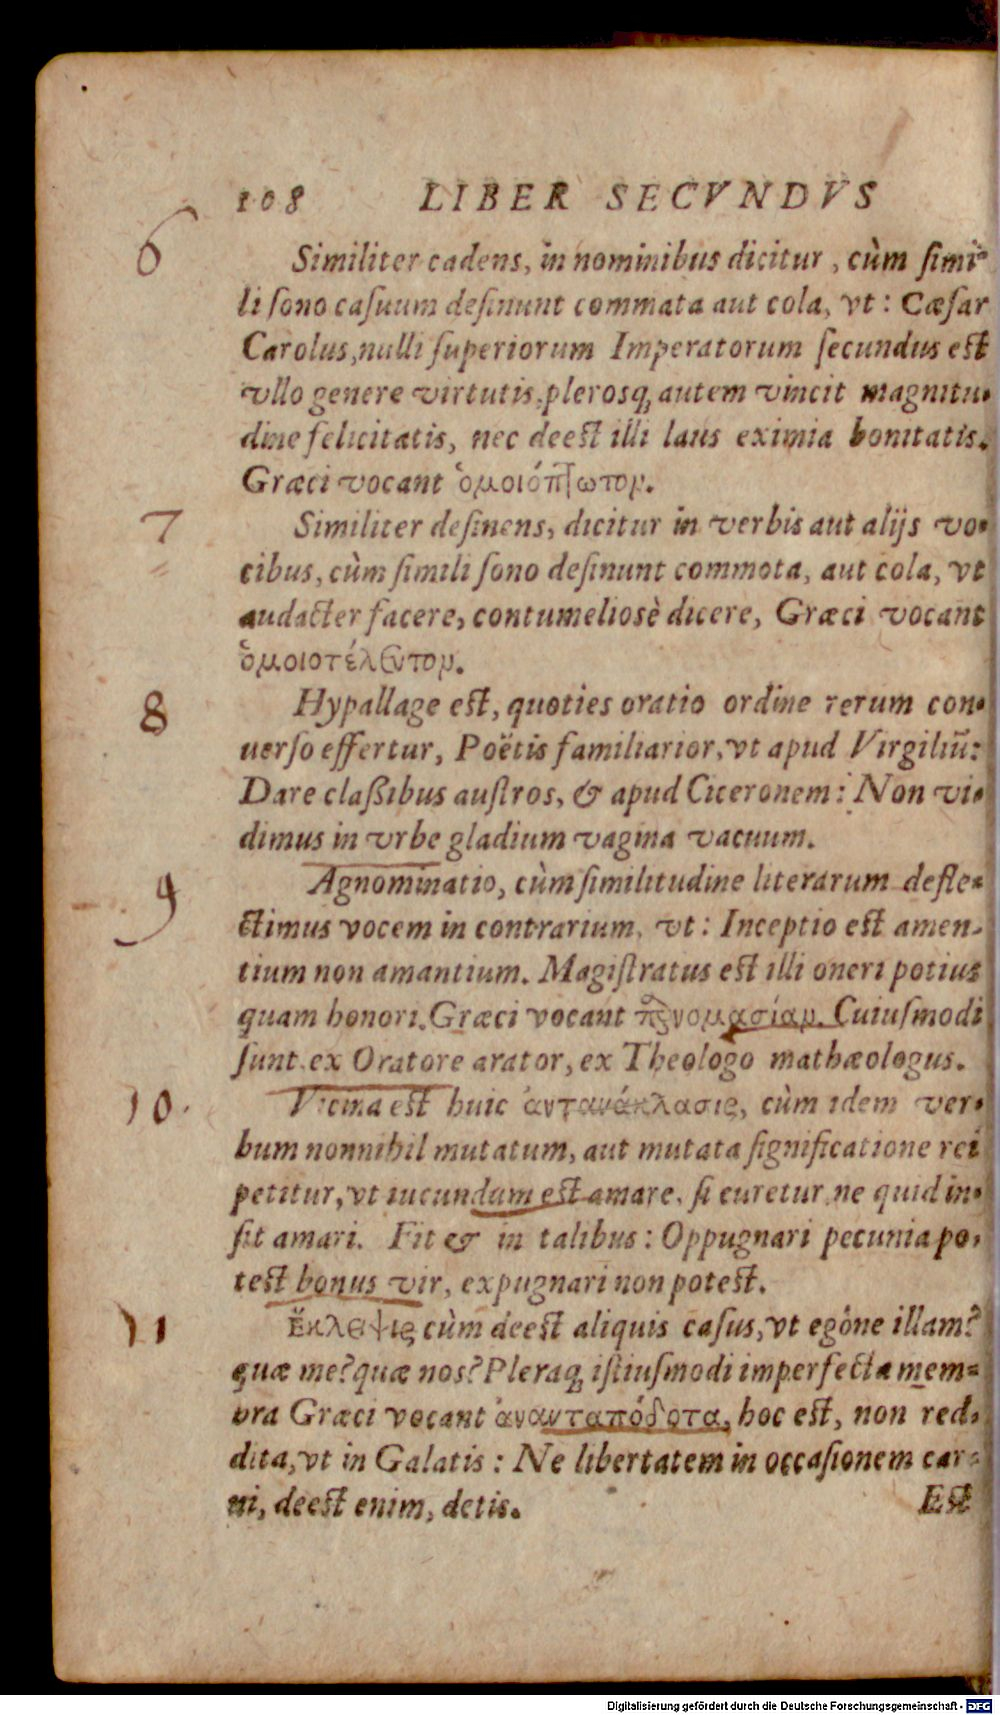 108 LIBER SECVNDVS
6
Similiter cadens, in nominibus dicitur, cùm simi-
li sono casuum desinunt commata aut cola, vt: Cæsar
Carolus, nulli superiorum Imperatorum secundus est
vllo genere virtutis, plerosq; autem vincit magnitu-
dine felicitatis, nec deest illi laus eximia bonitatis.
Græci vocant ὁμοιόπτωτον.
7
Similiter desinens, dicitur in verbis aut alijs vo-
cibus, cùm simili sono desinunt commota, aut cola, vt
audacter facere, contumeliosè dicere, Græci vocant
ὁμοιοτέλευτον.
8
Hypallage est, quoties oratio ordine rerum con-
uerso effertur, Poëtis familiarior, vt apud Virgiliũ:
Dare classibus austros, & apud Ciceronem: Non vi-
dimus in vrbe gladium vagina vacuum.
9
Agnominatio, cùm similitudine literarum defle-
ctimus vocem in contrarium, vt: Inceptio est amen-
tium non amantium. Magistratus est illi oneri potius
quam honori. Græci vocant παρονομασίαν. Cuiusmodi
sunt ex Oratore arator, ex Theologo mathæologus.
10.
Vicina est huic ἀντανάκλασις, cùm idem ver-
bum nonnihil mutatum, aut mutata significatione rei
petitur, vt iucundum est amare, si curetur ne quid in-
sit amari. Fit & in talibus: Oppugnari pecunia po-
test bonus vir, expugnari non potest.
11
Ἔκλεψις cùm deest aliquis casus, vt egône illam?
quæ me? quæ nos? Pleraq; istiusmodi imperfecta mem-
bra Græci vocant ἀνανταπόδοτα, hoc est, non red-
dita, vt in Galatis: Ne libertatem in occasionem car-
ni, deest enim, detis.
Est
Digitalisierung gefördert durch die Deutsche Forschungsgemeinschaft - DFG